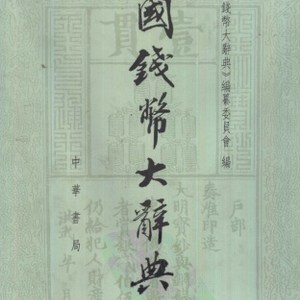 錢幣大辭典》編纂委員會 編
國錢幣大辭典
中華書局
壹貫
戶部
奏准印造
大明寶鈔與
仍給犯人財產
洪武 年